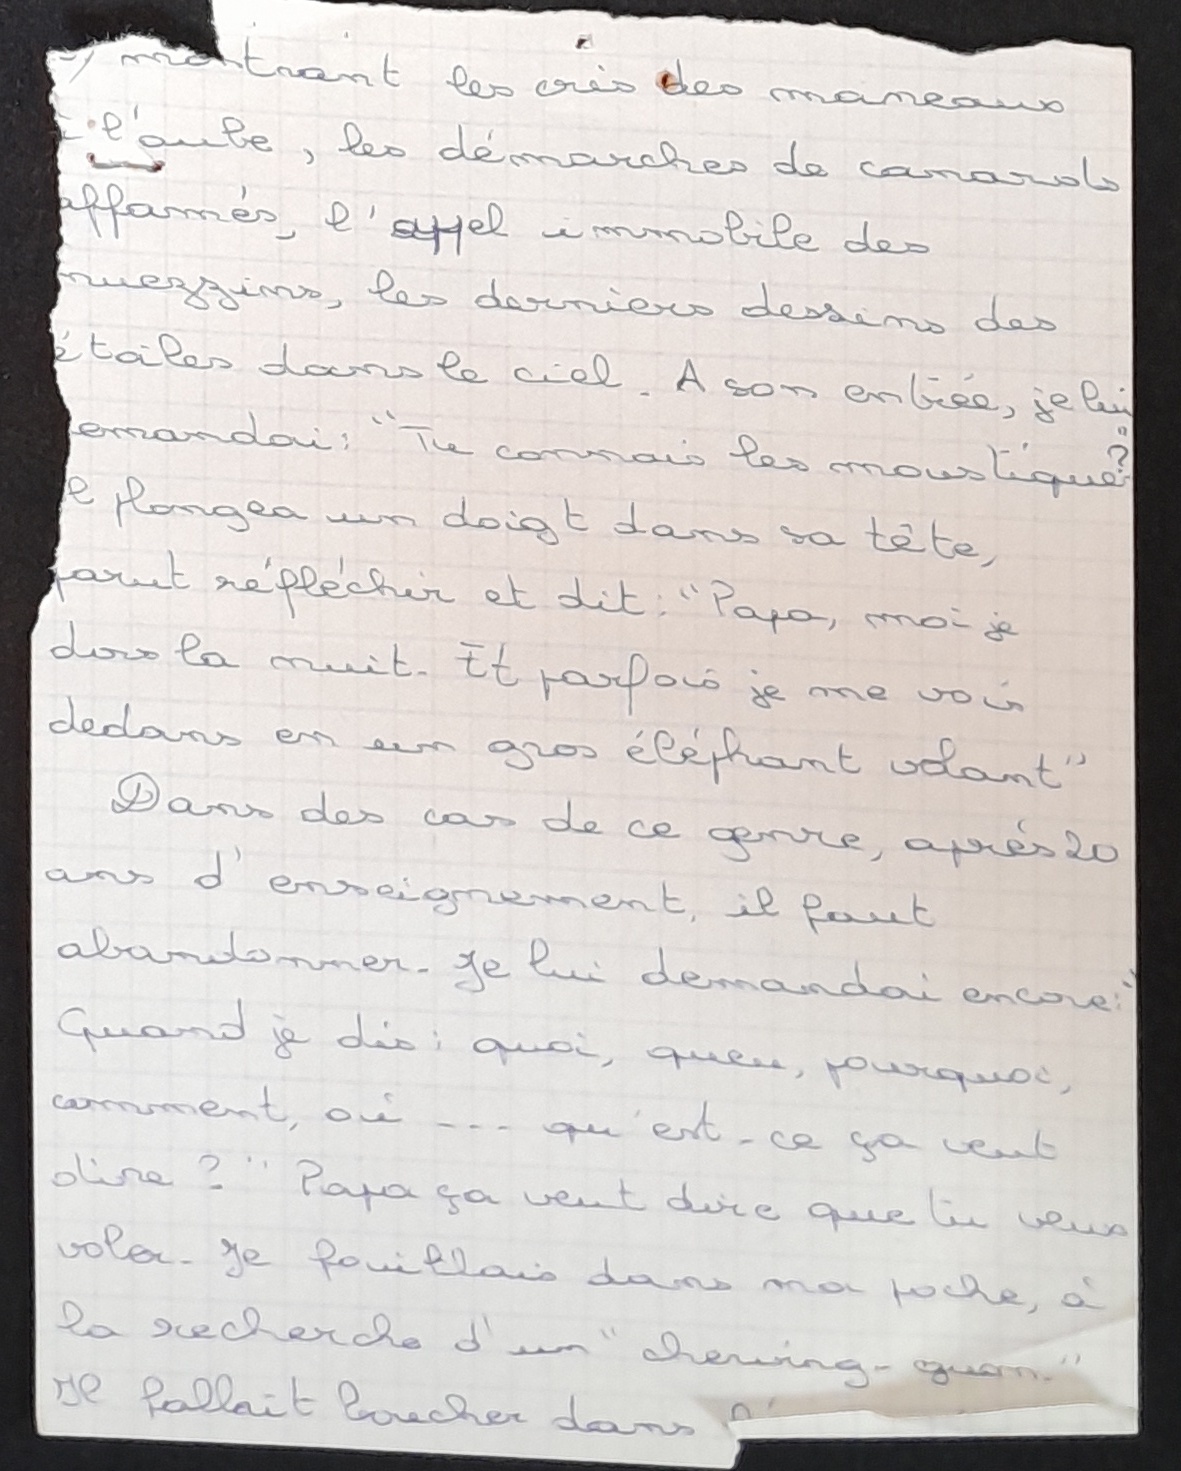 montrant les cris des maneaux
l'aube, les démarches de canards
affamés, l'appel immobile des
muezzins, les derniers dessins des
étoiles dans le ciel. A son entrée, je lui
emandai: "Tu connais les moustiques?"
l plongea un doigt dans sa tête,
parut réfléchir et dit: "Papa, moi je
dors la nuit. Et parfois je me vois
dedans en un gros éléphant volant"
Dans des cas de ce genre, après 20
ans d'enseignement, il faut
abandonner. Je lui demandai encore: "
Quand je dis: quoi, queu, pourquoi,
comment, où ... qu'est-ce ça veut
dire?" "Papa ça veut dire que tu veux
voler. Je fouillais dans ma poche, à
la recherche d'un "chewing-gum."
Il fallait boucher dans